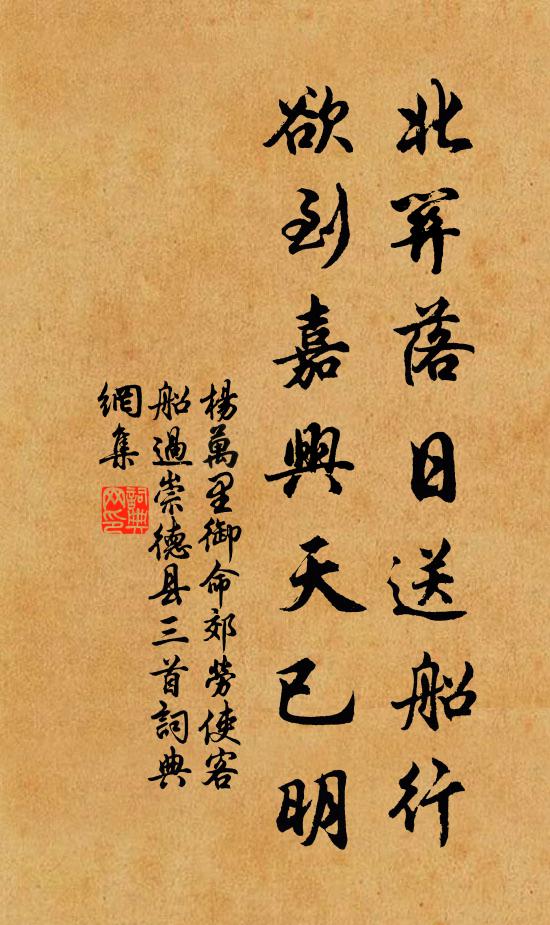 北关落日送船行
欲到嘉興天已明
楊萬里御命郊勞使客
船過崇德县三首詞典
網集
詞典
网印